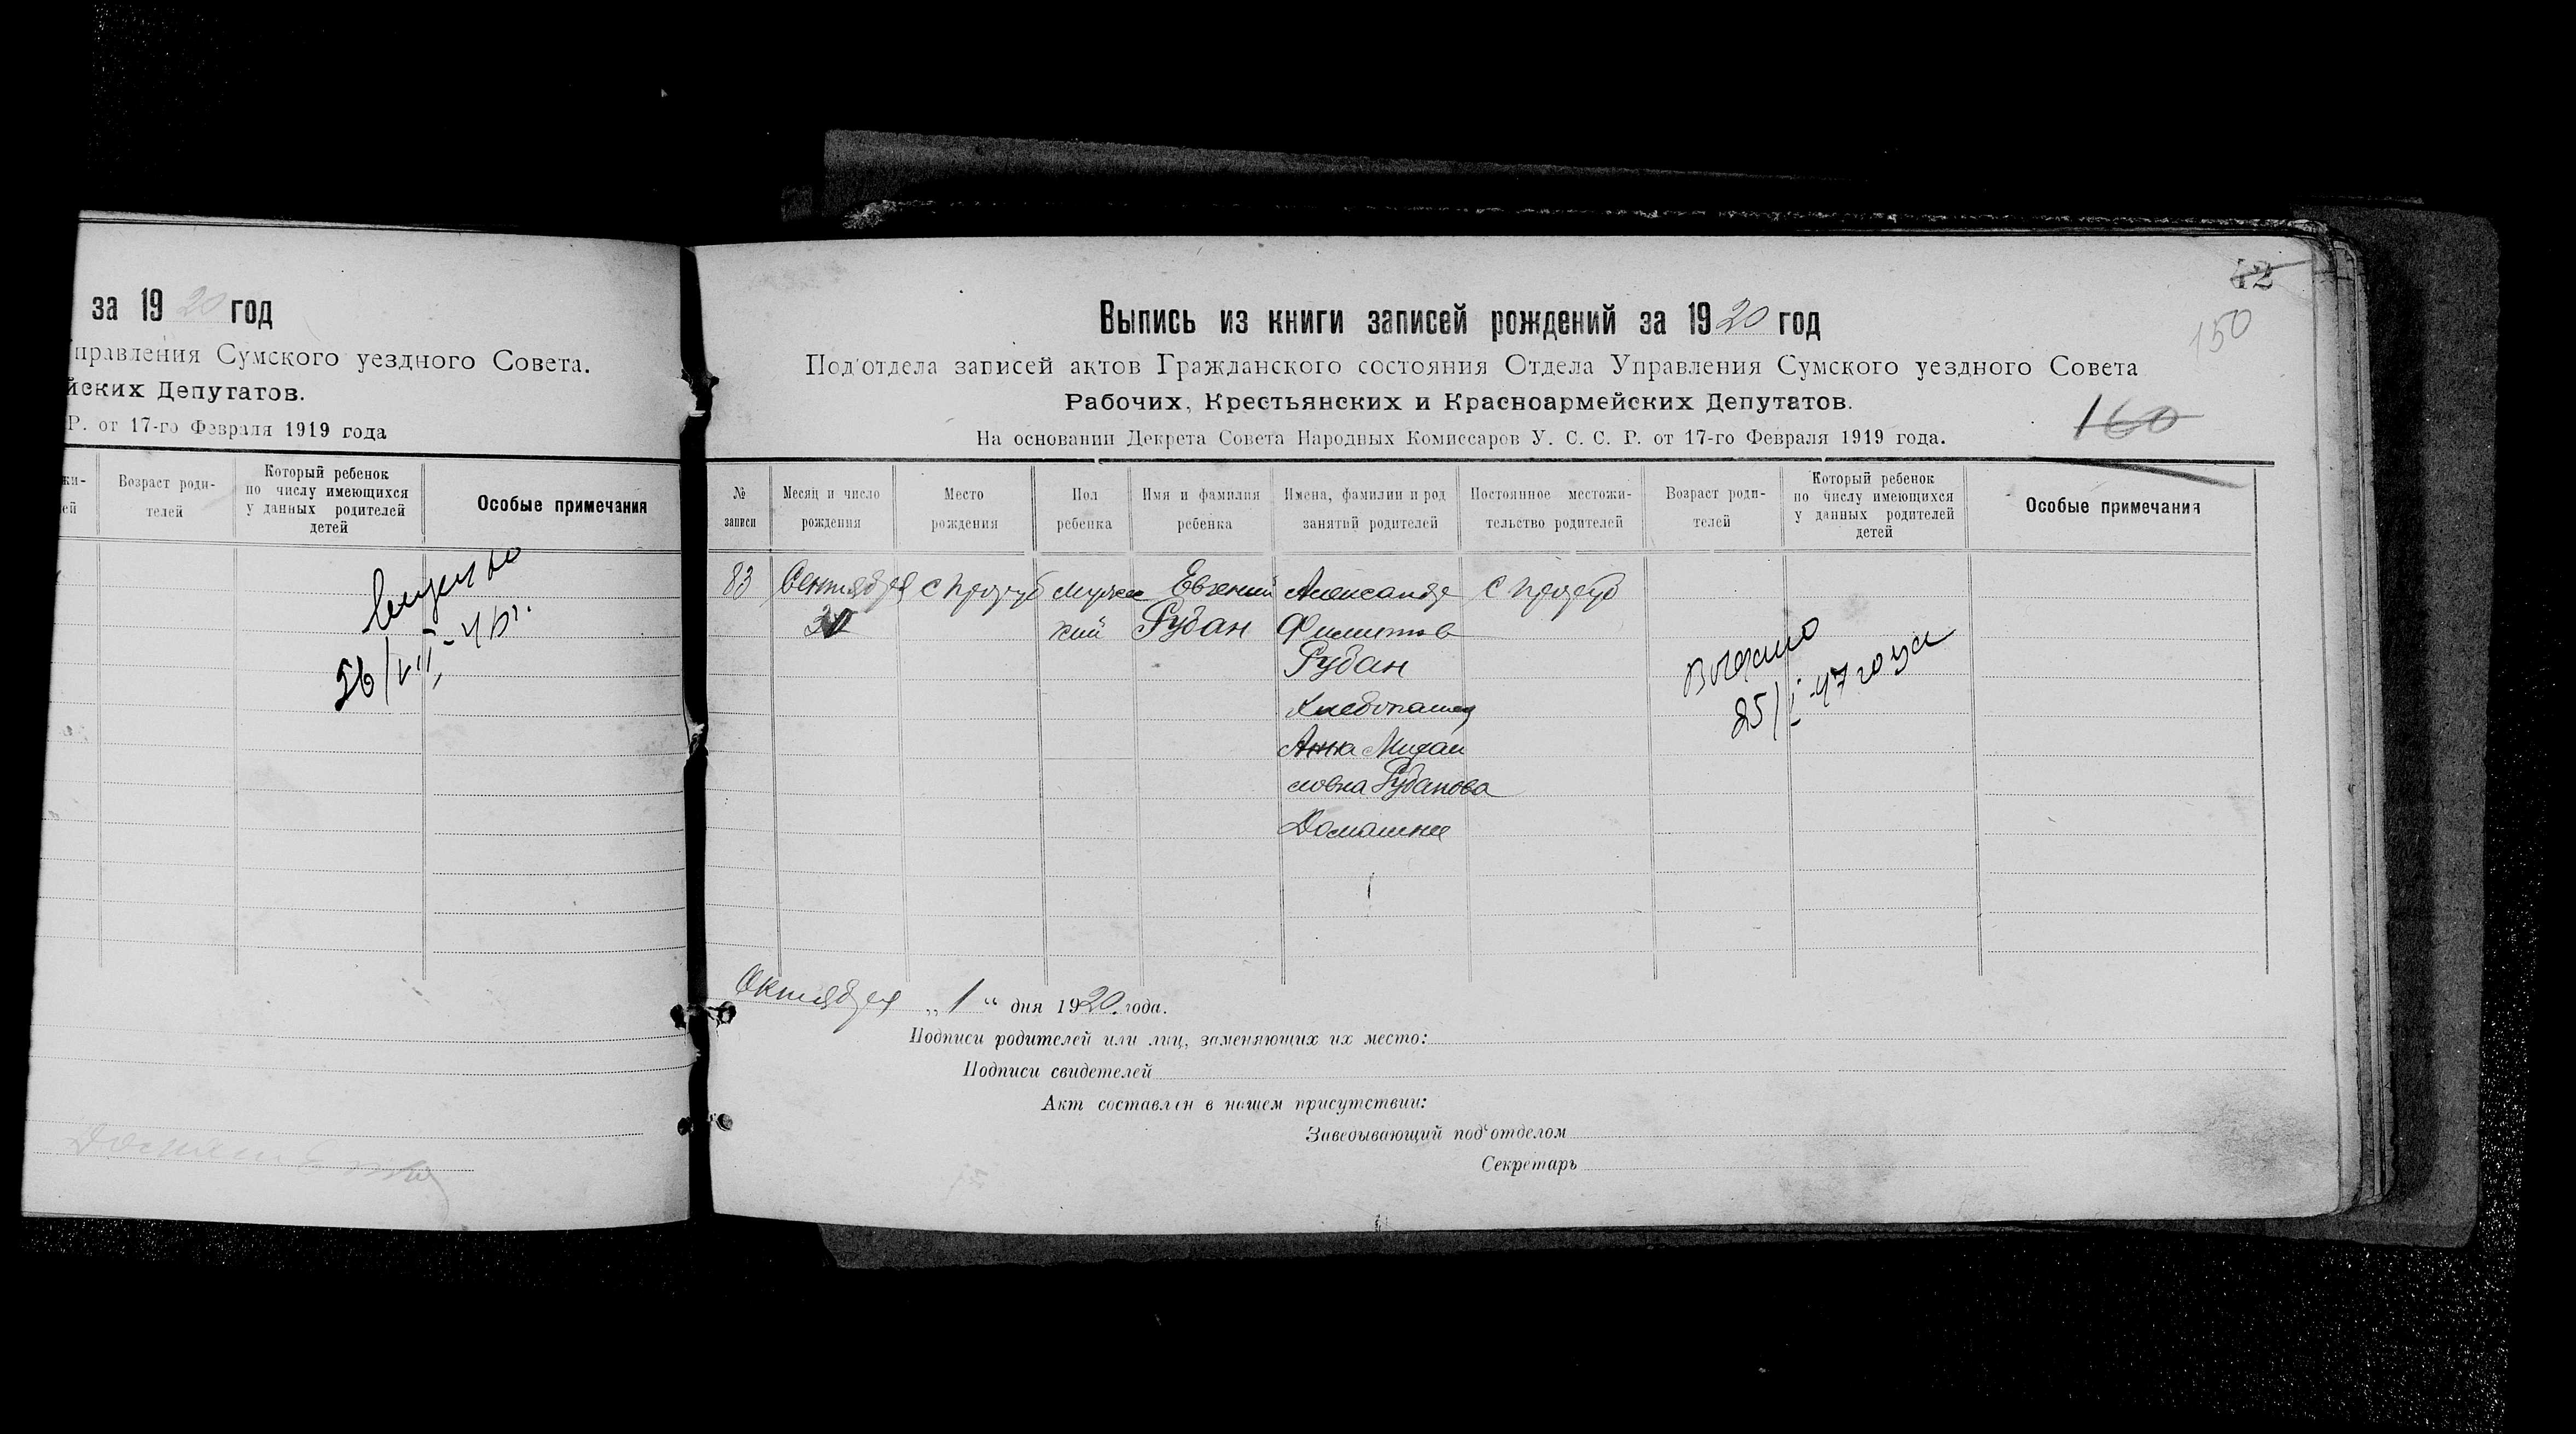 за 1920 год
правления Сумского уездного Совета.
йских Депутатов.
Р. от 17-го Февраля 1919 года
жи-
ей
Возраст роди-
телей
Который ребенок
по числу имеющихся
у данных родителей
детей
Особые примечания
26/VII-46г.
42
150
160
Выпись из книги записей рождений за 1920 год
Под'отдела записей актов Гражданского состояния Отдела Управления Сумского уездного Совета
Рабочих, Крестьянских и Красноармейских Депутатов.
На основании Декрета Совета Народных Комиссаров У. С. С. Р. от 17-го Февраля 1919 года.
№
записи
Месяц и число
рождения
Место
рождения
Пол
ребенка
Имя и фамилия
ребенка
Имена, фамилии и род
занятий родителей
Постоянное местожи-
тельство родителей
Возраст роди-
телей
Который ребенок
по числу имеющихся
у данных родителей
детей
Особые примечания
83
Сентября
с
Мужес
кий
Евгений
Рубан
Александр
Филипов
Рубан
Хлебопашец
Анна Михаи
ловна Рубанова
Домашнее
с
Выдано
25/I-47 года
Октября „1“ дня 1920 года.
Подписи родителей или лиц, заменяющих их место:
Подписи свидетелей
Акт составлен в нашем присутствии:
Заведывающий под'отделом
Секретарь